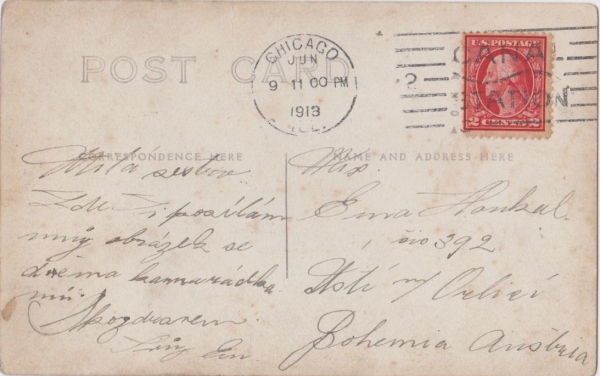 POST CARD
CHICAGO
JUN
9 11 00 PM
1913
ILL.
2
CANAL
STATION
U.S. POSTAGE
2 CENTS 2
CORRESPONDENCE HERE
NAME AND ADDRESS HERE
Milá sestro
Zde Ti posílám
můj obrázek se
dvěma kamarádka
mi
S pozdravem
Miss.
Ema
čís 392
Ústí n/ Orlicí
Bohemia Austria